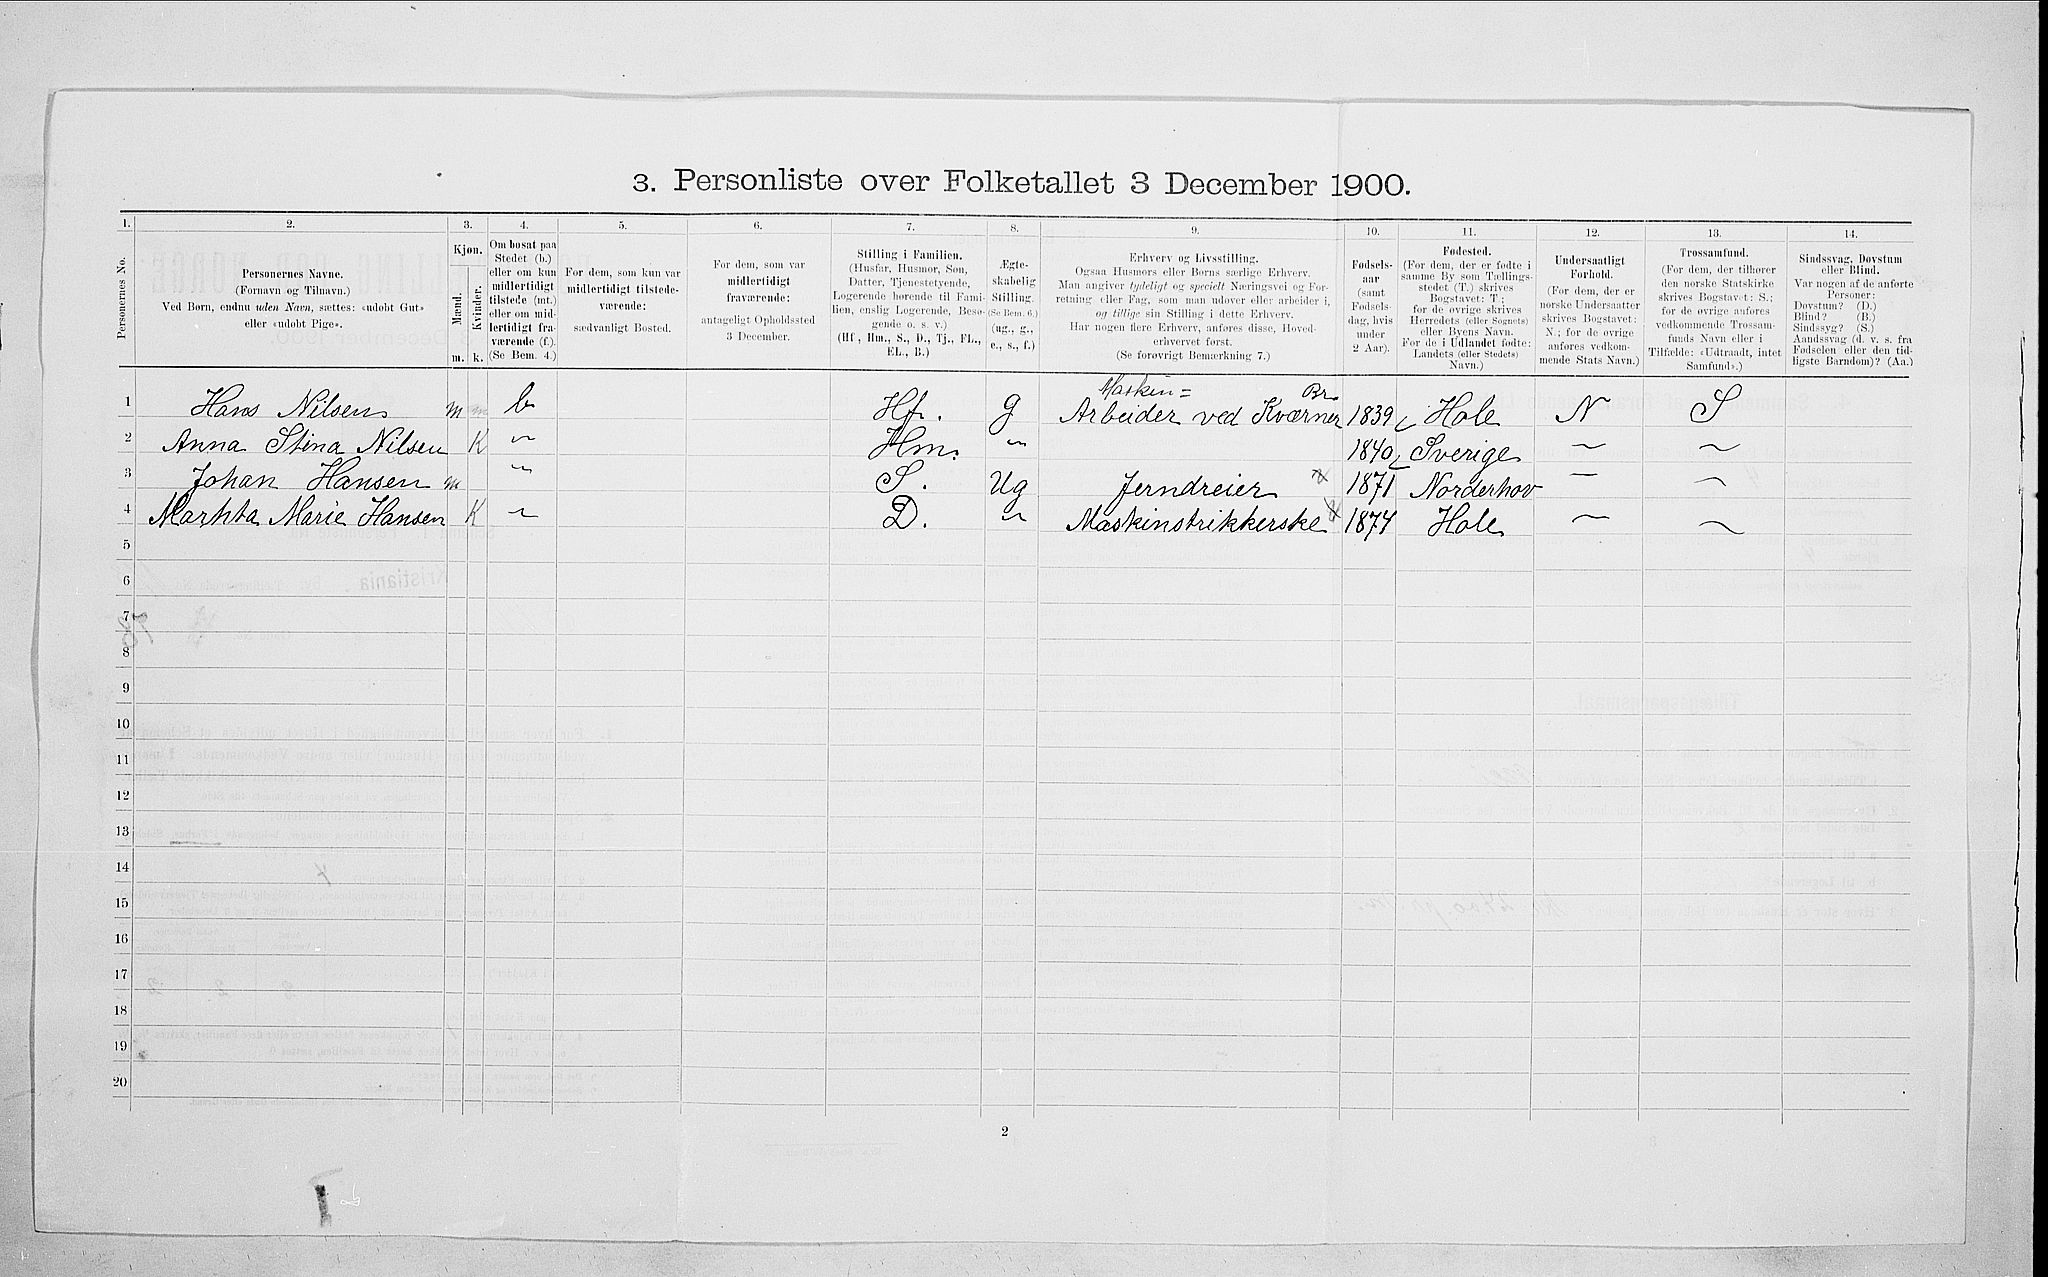 3. Personliste over Folketallet 3 December 1900.
1. 2. 3. 4. 5. 6. 7. 8. 9. 10. 11. 12. 13. 14.
Personernes No.
Personernes Navne.
(Fornavn og Tilnavn.)
Ved Børn, endnu uden Navn, sættes: «udøbt Gut»
eller «udøbt Pige».
Kjøn.
Mænd.
Kvinder.
m. k.
Om bosat paa
Stedet (b.)
eller om kun
midlertidigt
tilstede (mt.)
eller om mid-
lertidigt fra-
værende (f.)
(Se Bem. 4.)
For dem, som kun var
midlertidigt tilstede-
værende:
sædvanligt Bosted.
For dem, som var
midlertidigt
fraværende:
antageligt Opholdssted
3 December.
Stilling i Familien.
(Husfar, Husmor, Søn,
Datter, Tjenestetyende,
Logerende hørende til Fami-
lien, enslig Logerende, Besø-
gende o. s. v.)
(Hf, Hm., S., D., Tj., FL.,
EL., B.)
Ægte-
skabelig
Stilling.
(Se Bem. 6.)
(ug., g.,
e., s., f.)
Erhverv og Livsstilling.
Ogsaa Husmors eller Børns særlige Erhverv.
Man angiver tydeligt og specielt Næringsvei og For-
retning eller Fag, som man udøver eller arbeider i,
og tillige sin Stilling i dette Erhverv.
Har nogen flere Erhverv, anføres disse, Hoved-
erhvervet først.
(Se forøvrigt Bemærkning 7.)
Fødsels-
aar
(samt
Fødsels-
dag, hvis
under
2 Aar).
Fødested.
(For dem, der er fødte i
samme By som Tællings-
stedet (T.) skrives
Bogstavet: T;
for de øvrige skrives
Herredets (eller Sognets)
eller Byens Navn.
For de i Udlandet fødte:
Landets (eller Stedets)
Navn.)
Undersaatligt
Forhold.
(For dem, der er
norske Undersaatter
skrives Bogstavet:
N.; for de øvrige
anføres vedkom-
mende Stats Navn.)
Trossamfund.
(For dem, der tilhører
den norske Statskirke
skrives Bogstavet: S.;
for de øvrige anføres
vedkommende Trossam-
funds Navn eller i
Tilfælde: «Udtraadt, intet
Samfund».)
Sindssvag, Døvstum
eller Blind.
Var nogen af de anførte
Personer:
Døvstum? (D.)
Blind? (B.)
Sindssyg? (S.)
Aandssvag (d. v. s. fra
Fødselen eller den tid-
ligste Barndom)? (Aa.)
Maskin= Br.
1 Hans Nilsen m b Hf. g Arbeider ved Kværner 1839 Hole N S
2 Anna Stina Nilsen K " Hm. " 1840 Sverige ~ ~
3 Johan Hansen m " S. Ug Jerndreier 1871 Norderhov ~ ~
4 Markta Marie Hansen K " D. " Maskinstrikkerske 1874 Hole ~ ~
5
6
7
8
9
10
11
12
13
14
15
16
17
18
19
20
2